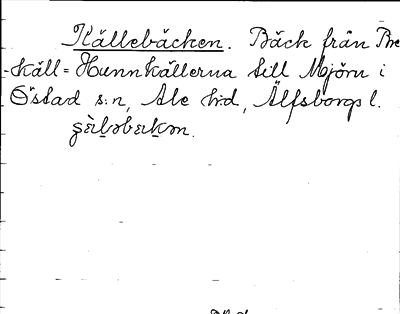 Källebäcken. Bäck från Bre
-käll = Hunnkällerna till Mjörn i
Östad s:n, Ale h:d, Älfsborgs l.